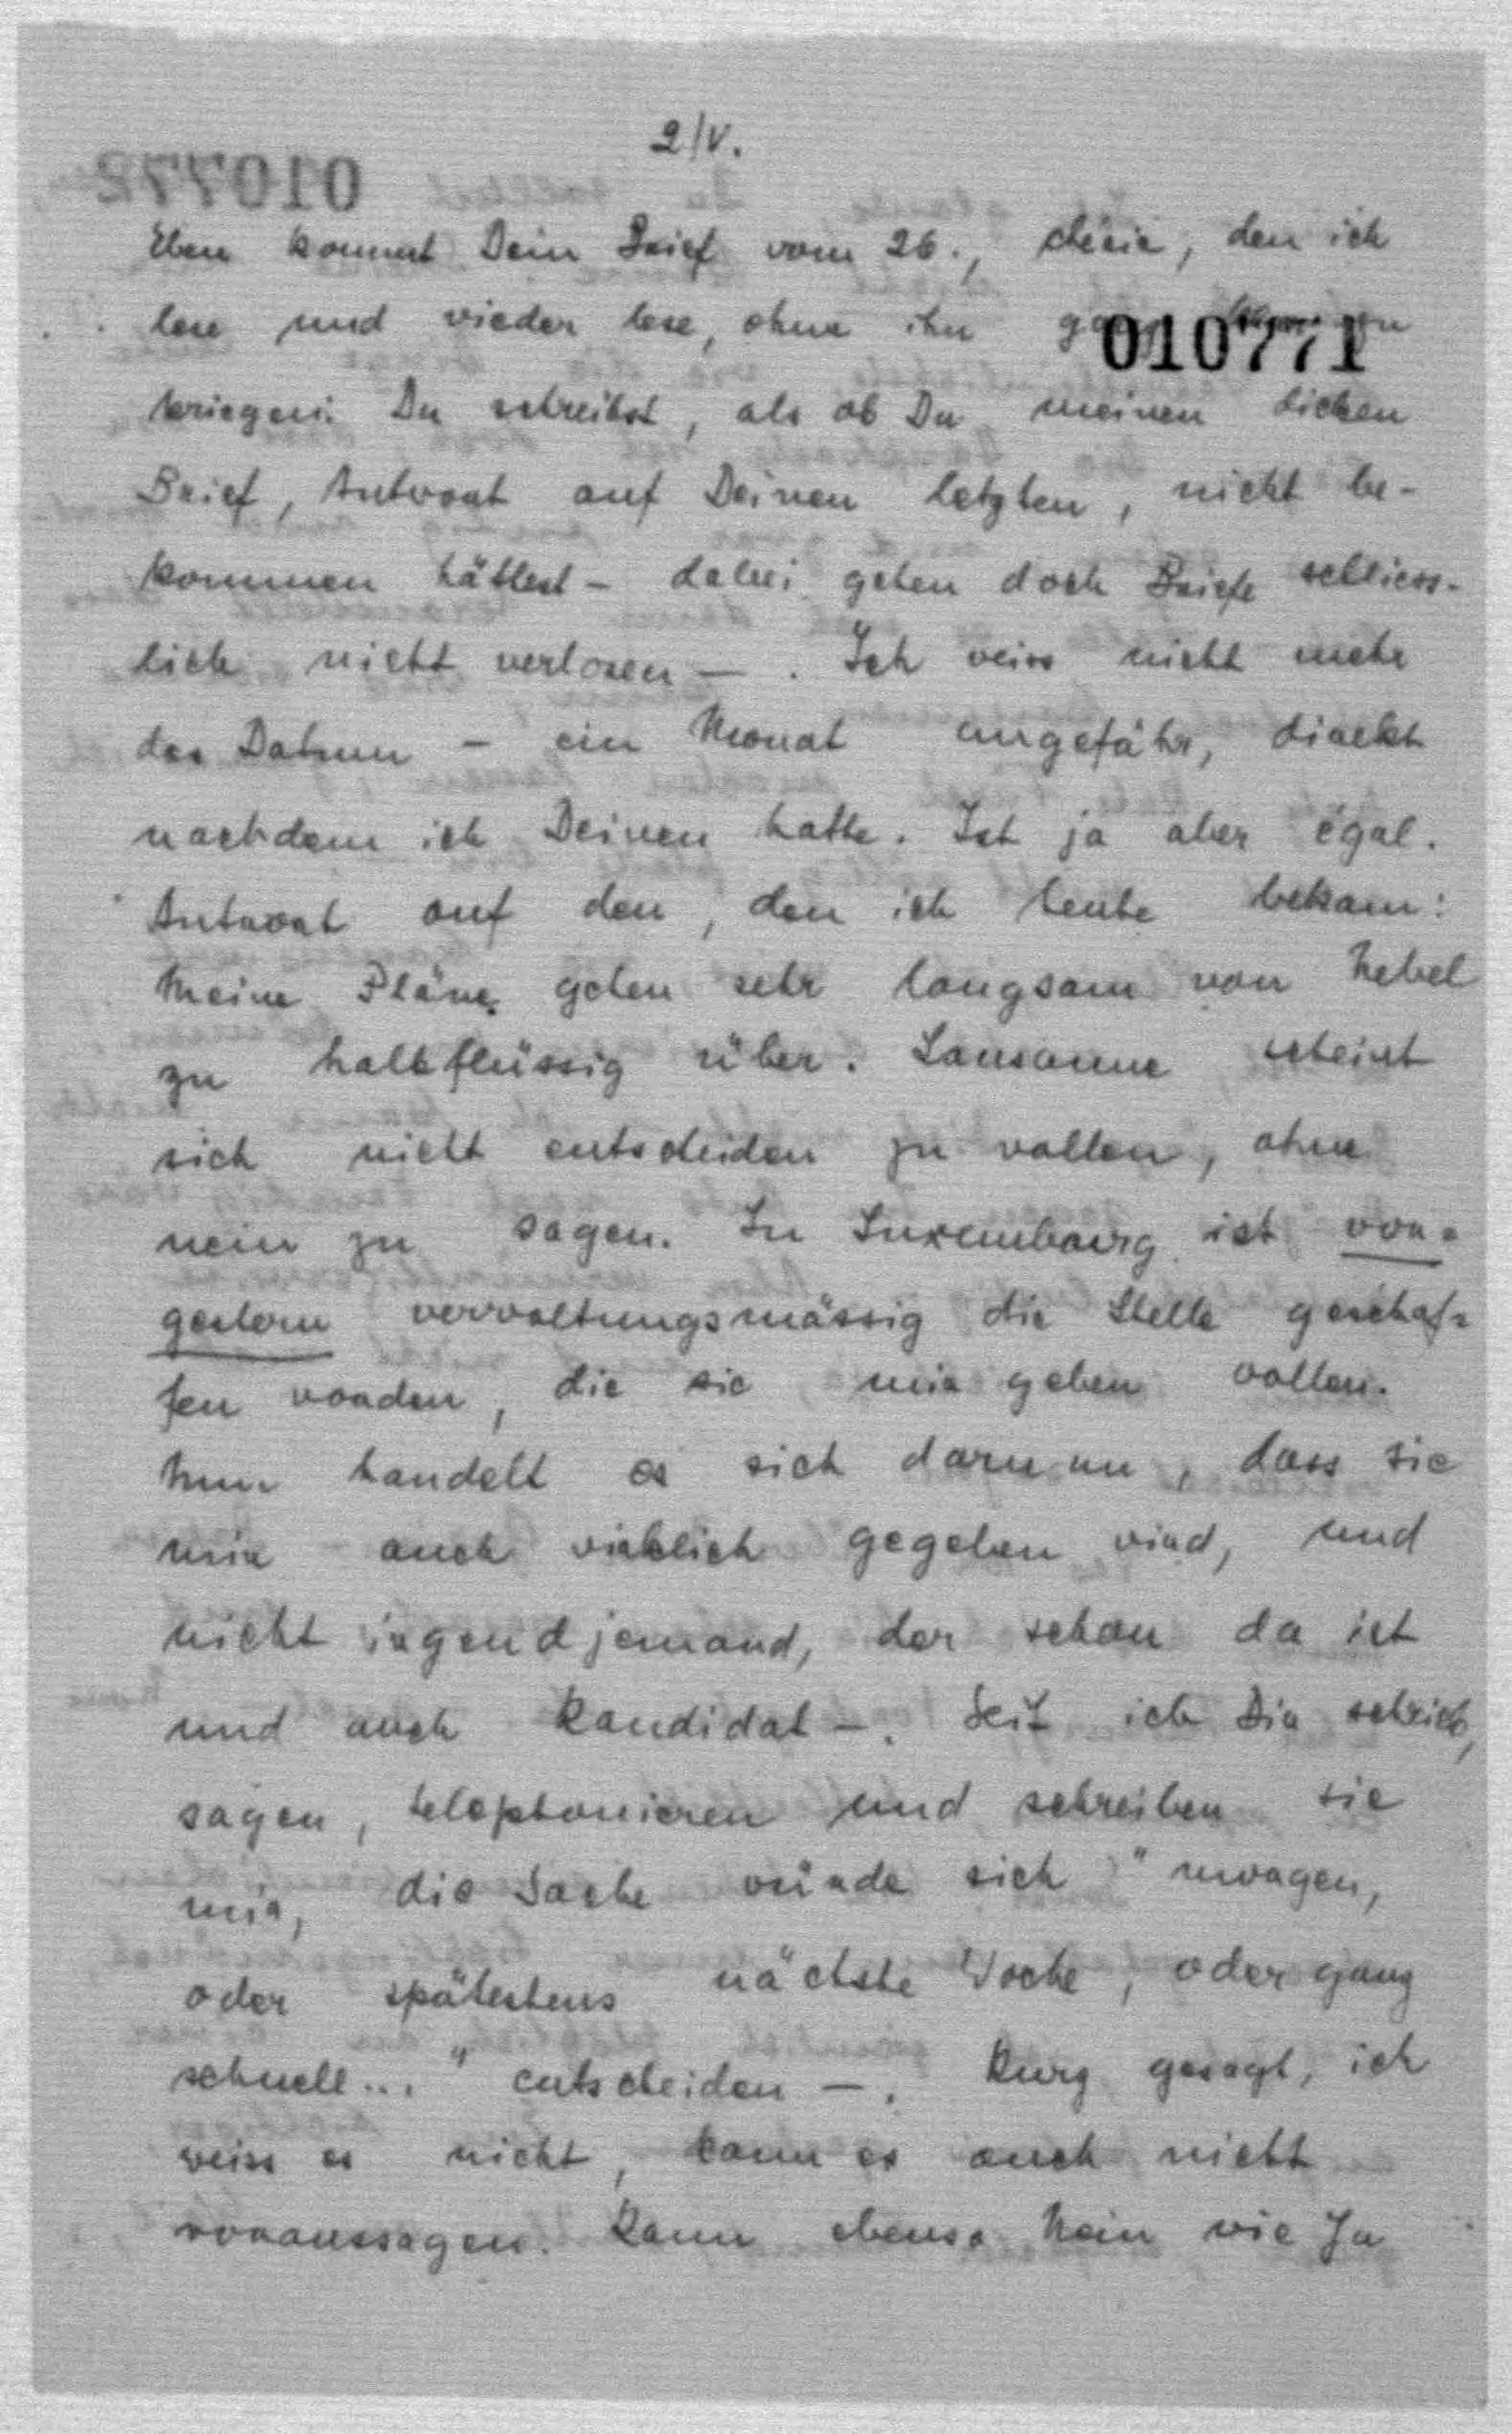 2/V.
Eben kommt Dein Brief vom 26., chérie, den ich
lese und wieder lese, ohne ihn
010771
kriegen. Du schreibst, als ob Du meinen dicken
Brief, Antwort auf Deinen letzten, nicht be-
kommen hättest – dabei gehen doch Briefe schliess-
lich nicht verloren –. Ich weiss nicht mehr
das Datum – ein Monat ungefähr, direkt
nachdem ich Deinen hatte. Ist ja aber égal.
Antwort auf den, den ich heute bekam:
Meine Pläne gehen sehr langsam von Nebel
zu halbflüssig über. Lausanne scheint
sich nicht entscheiden zu wollen, ohne
nein zu sagen. In Luxembourg ist vor=
gestern verwaltungsmässig die Stelle geschaf=
fen worden, die sie mir geben wollen.
Nun handelt es sich darum, dass sie
mir auch wirklich gegeben wird, und
nicht irgendjemand, der schon da ist
und auch Kandidat –. Seit ich Dir schrieb,
sagen, telephonieren und schreiben sie
mir, die Sache würde sich "morgen,
oder spätestens nächste Woche, oder ganz
schnell..." entscheiden –. Kurz gesagt, ich
weiss es nicht, kann es auch nicht
voraussagen. Kann ebenso Nein wie Ja